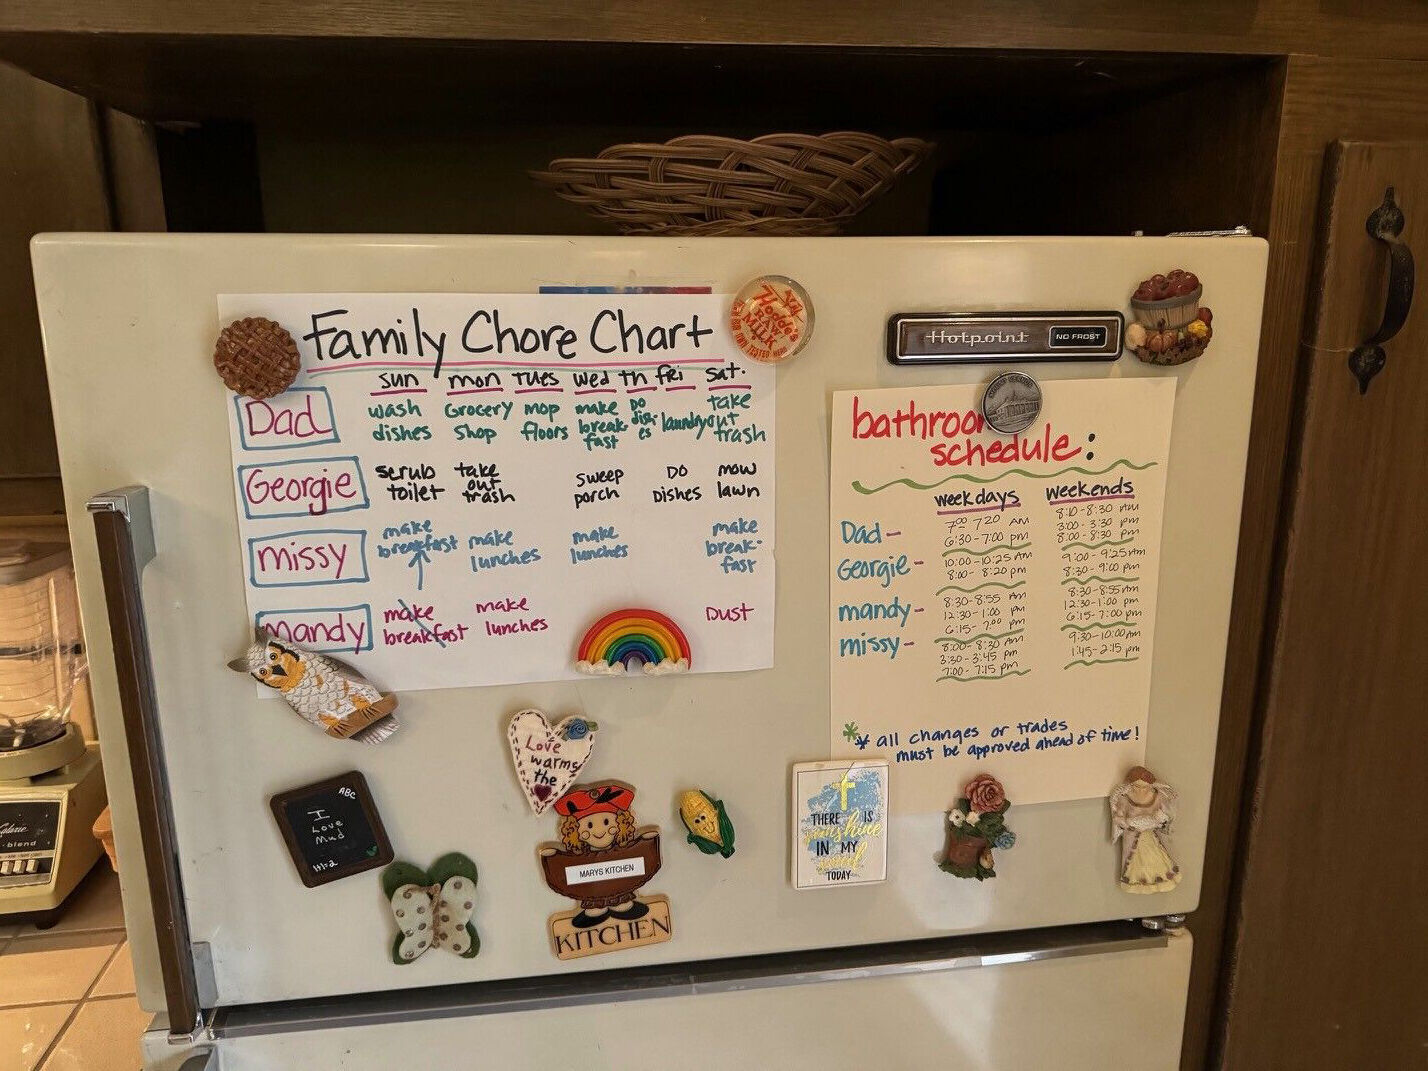 Family Chore Chart
sun mon Tues wed th fri sat.
Dad
wash
dishes
Grocery
shop
mop
floors
make
break-
fast
DO
dish-
es
laundry
take
out
trash
Georgie
scrub
toilet
take
out
trash
sweep
porch
DO
DISHES
mow
lawn
missy
make
breakfast
make
lunches
make
lunches
make
break-
fast
mandy
make
breakfast
make
lunches
DUST
RAW
MILK
Hotpoint
NO FROST
bathroom
schedule:
weekdays weekends
Dad-
7:00 7:20 AM
6:30-7:00 pm
8:10-8:30 AM
3:00-3:30 pm
8:00-8:30 pm
Georgie-
10:00-10:25 AM
8:00-8:20 pm
9:00-9:25 AM
8:30-9:00 pm
mandy-
8:30-8:55 AM
12:30-1:00 pm
6:15-7:00 pm
8:30-8:55 am
12:30-1:00 pm
6:15-7:00 pm
missy-
8:00-8:30 AM
3:30-3:45 pm
7:00-7:15 pm
9:30-10:00 Am
1:45-2:15 pm
* all changes or trades
must be approved ahead of time!
Love
warms
the
ABC
I
Love
Mud
1+1=2
MARYS KITCHEN
KITCHEN
THERE IS
sunshine
IN MY
soul
TODAY
Galaxie